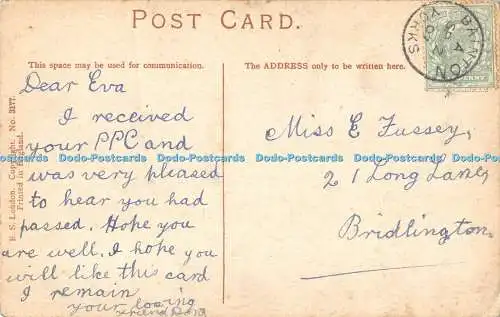 POST CARD.
This space may be used for communication.
The ADDRESS only to be written here.
BAINTON
YORKS
Dear Eva
I received
your PPC and
was very pleased
to hear you had
passed. Hope you
are well. I hope you
will like this card
I remain
your loving
friend
Miss E Fussey,
21 Long Lane,
Bridlington.
H. S. London. Copyright. No. 3177.
Printed in England.
Dodo-Postcards Dodo-Postcards Dodo-Postcards Dodo-Postcards